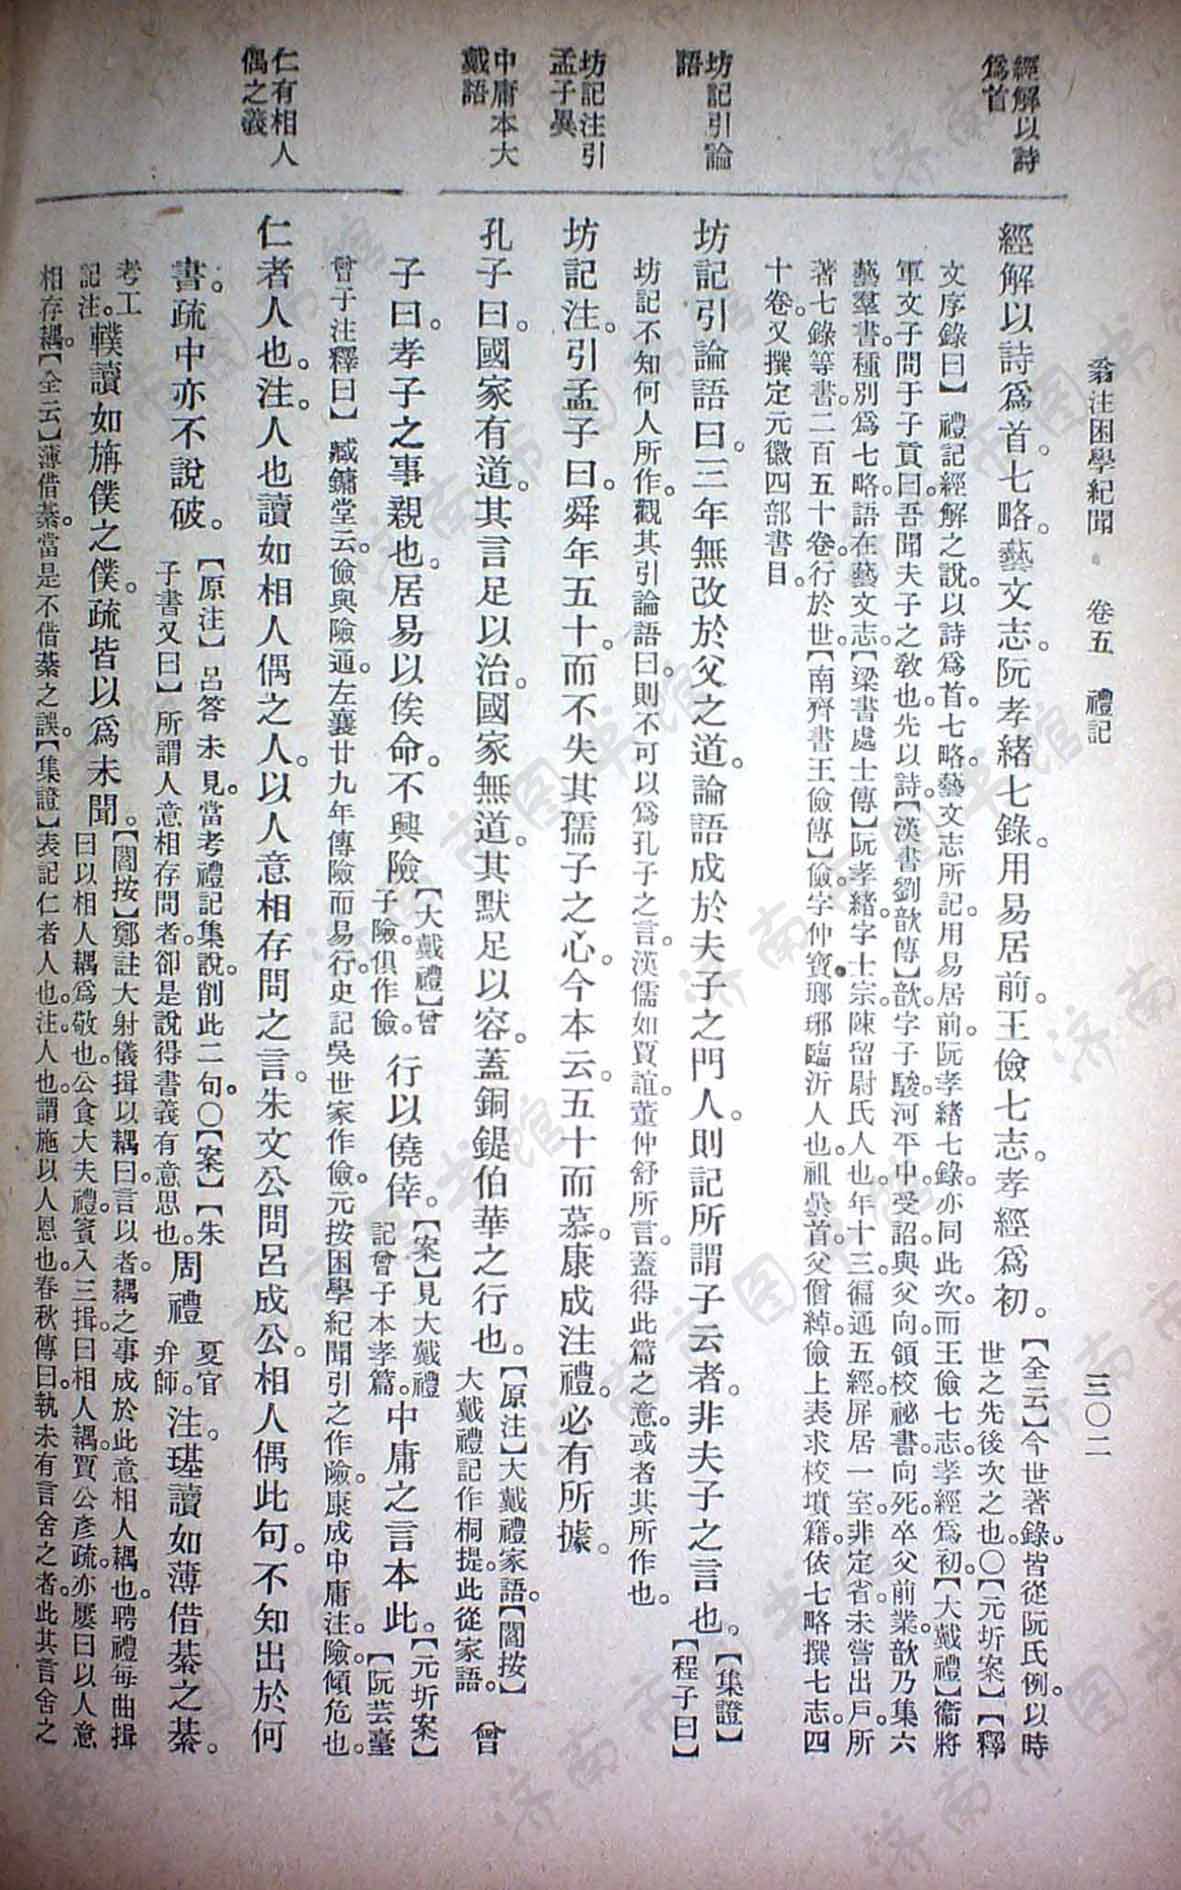 翁注困學紀聞 卷五 禮記 三〇二
經解以詩
爲首
坊記引論
語
坊記注引
孟子異
中庸本大
戴語
仁有相人
偶之義
經解以詩爲首。七略。藝文志。阮孝緒七錄。用易居前。王儉七志。孝經爲初。【全云】今世著錄。皆從阮氏例。以時
世之先後次之也。〇【元圻案】【釋
文序錄曰】禮記經解之說。以詩爲首。七略。藝文志所記。用易居前。阮孝緒七錄。亦同此次。而王儉七志。孝經爲初。【大戴禮】衞將
軍文子問于子貢曰。吾聞夫子之敎也。先以詩。【漢書劉歆傳】歆字子駿。河平中。受詔與父向。領校祕書。向死。卒父前業。歆乃集六
藝羣書。種別爲七略。語在藝文志。【梁書處士傳】阮孝緒。字士宗。陳留尉氏人也。年十三。徧通五經。屏居一室。非定省。未嘗出戶。所
著七錄等書。二百五十卷。行於世。【南齊書王儉傳】儉字仲寳。瑯琊臨沂人也。祖曇首。父僧綽。儉上表求校墳籍。依七略撰七志。四
十卷。又撰定元徽四部書目。
坊記引論語曰。三年無改於父之道。論語成於夫子之門人。則記所謂子云者。非夫子之言也。【集證】
【程子曰】
坊記不知何人所作。觀其引論語曰。則不可以爲孔子之言。漢儒如賈誼。董仲舒所言。蓋得此篇之意。或者其所作也。
坊記注。引孟子曰。舜年五十。而不失其孺子之心。今本云。五十而慕。康成注禮。必有所據。
孔子曰。國家有道。其言足以治。國家無道。其默足以容。蓋銅鍉伯華之行也。【原注】大戴禮家語。【閻按】
大戴禮記作桐提。此從家語。 曾
子曰。孝子之事親也。居易以俟命。不興險【大戴禮】曾
子險。俱作儉。行以僥倖。【案】見大戴禮
記曾子本孝篇。中庸之言本此。【元圻案】
【阮芸臺
曾子注釋曰】臧鏞堂云。儉與險通。左襄廿九年傳險而易行。史記吳世家作儉。元按困學紀聞引之作險。康成中庸注。險。傾危也。
仁者人也。注。人也讀如相人偶之人。以人意相存問之言。朱文公問呂成公。相人偶此句。不知出於何
書。疏中亦不說破。【原注】呂答未見。當考禮記集說。削此二句。〇【案】【朱
子書又曰】所謂人意相存問者。卻是說得書義有意思也。周禮夏官
弁師。注。璂讀如薄借綦之綦。
考工
記注。轐讀如旃僕之僕。疏皆以爲未聞。【閻按】鄭註大射儀揖以耦曰。言以者。耦之事成於此意相人耦也。聘禮每曲揖
曰以相人耦爲敬也。公食大夫禮。賓入三揖。曰相人耦。賈公彥疏。亦屢曰以人意
相存耦。【全云】薄借綦。當是不借綦之誤。【集證】表記仁者人也。注。人也。謂施以人恩也。春秋傳曰。執未有言舍之者。此其言舍之